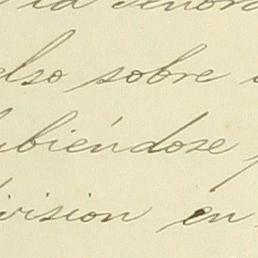 la Señora
elso sobre
biéndose
ivision en